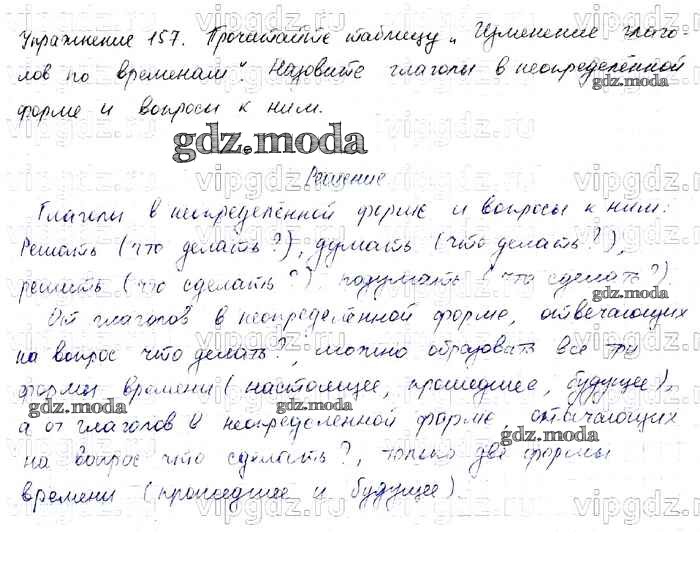 Упражнение 157. Прочитайте таблицу „Изменение глаго-
лов по временам". Назовите глаголы в неопределённой
форме и вопросы к ним.
gdz.moda
gdz.moda
Решение
Глаголы в неопределённой форме и вопросы к ним:
Решать (что делать?), думать (что делать?),
решить (что сделать?) подумать (что сделать?)
gdz.moda
От глаголов в неопределённой форме, отвечающих
на вопрос что делать?, можно образовать все три
формы времени (настоящее, прошедшее, будущее),
gdz.moda
gdz.moda
а от глаголов в неопределённой форме, отвечающих
gdz.moda
на вопрос что сделать?, только две формы
времени (прошедшее и будущее).